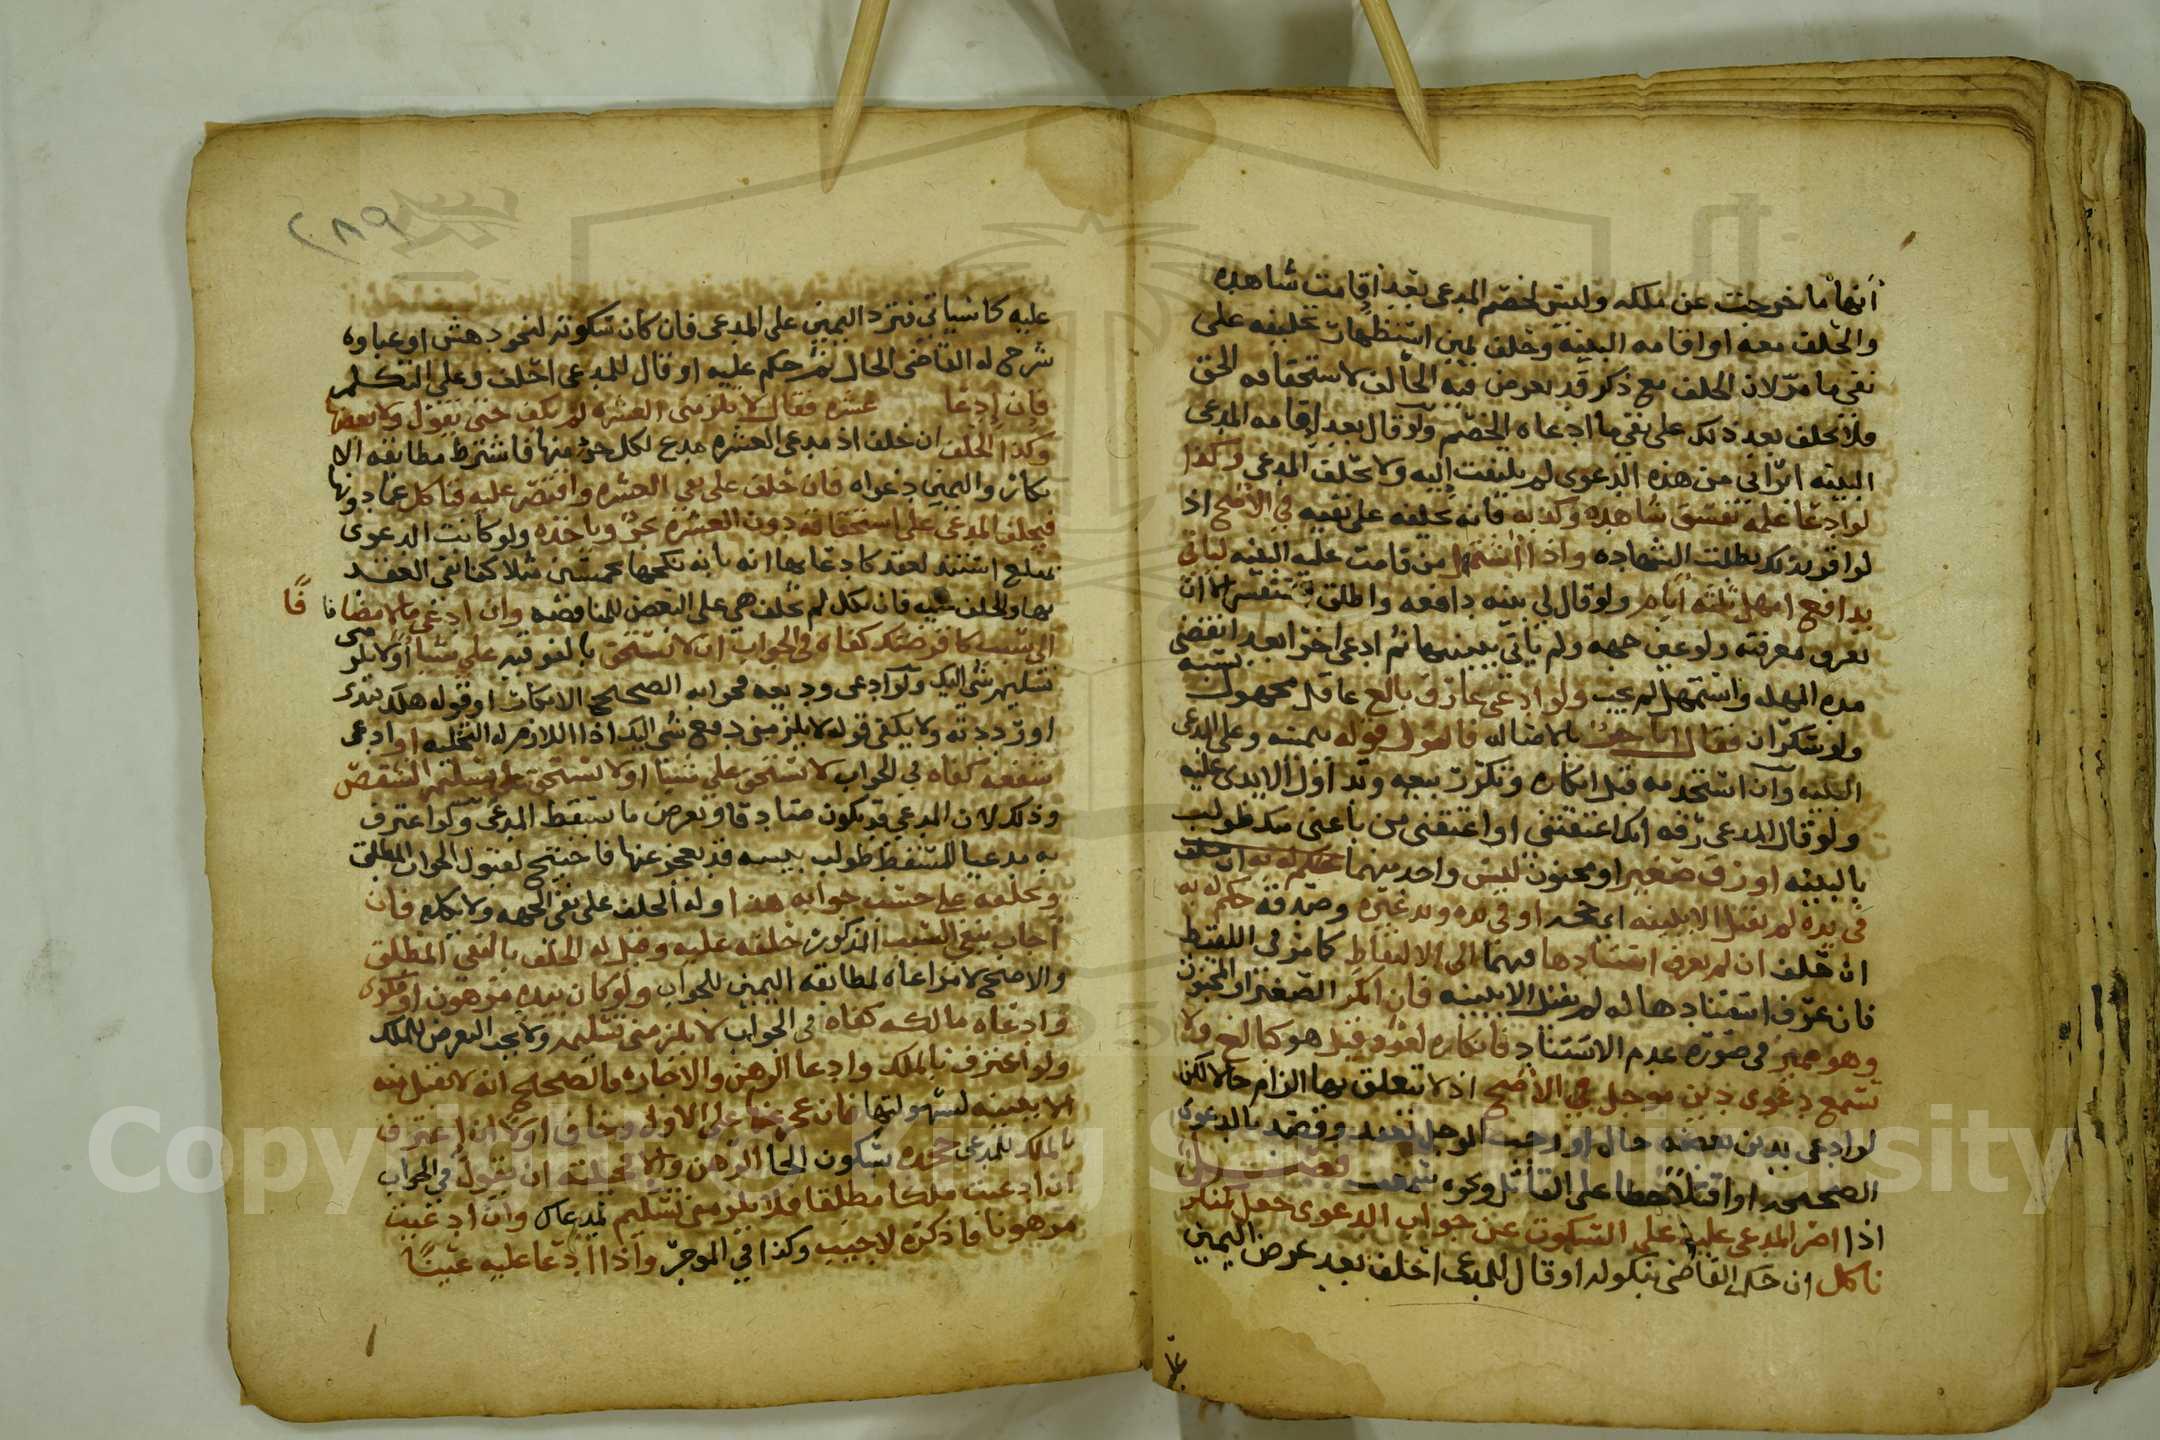 أنها ما خرجت عن ملكه وليس لخصم المدعى بعد اقامت شاهده
والحلف معه او اقامه البينه وحلف يمين استظهار تحليفه على
نفى ما مر لان الحلف مع ذكر قد تعرض فيه الحالف لاستحقاقه الحق
فلا يحلف بعد ذلك على نفي ما ادعاه الخصم ولو قال بعد اقامه المدعى
البينه ابرأني من هذه الدعوى لم يلتفت إليه ولا يحلف المدعى وكذا
لو ادعا علمه بفسق شاهده وكذبه فانه يحلفه على نفيه في الأصح اذ
لو اقر بذلك بطلت الشهاده واذا استمهل من قامت عليه البينه لياتى
بدافع امهل ثلثه أيام ولو قال لي بينه دافعه واطلق استفسر الا ان
يعرف معرفته ولو عين جهه ولم يأتي ببينتها ثم ادعى اخرا بعد انقضى
مده المهله واستمهل لم يجب ولو ادعى على رق بالغ عاقل مجهول نسبه
ولو سكران فقال انا حر بالاصاله فالقول قوله بيمينه وعلى المدعى
البينه وان استخدمه قبل انكاره وتكرر بيعه وتداول الايدى عليه
ولو قال المدعى رقه انك اعتقتنى او اعتقنى من باعنى منك طولب
بالبينه او رق صغير او مجنون ليس واحد منهما حكم له به ان حلف
في يده لم يقبل الا ببينه اى جحد او في يده ويد غيره وصدقه حكم له به
ان حلف ان لم يعرف استنادها فيهما الى الالتقاط كما مر في اللقيط
فان عرف استنادها له لم يقبل الا ببينه فان انكر الصغير او المجنون
وهو مميز فى صورة عدم الاستناد فانكاره لغو وقيل هو كبالغ ولا
تسمع دعوى دين موجل في الأصح اذ لا تتعلق بها الزام حالا لكن
لو ادعى بدين بعضه حال او رجب الموجل بعقد وقصد بالدعوى
الصحيحه او اقتلا خطا على القاتل ونحوه سمعت فصل
اذا اصر المدعى عليه على السكوت عن جواب الدعوى جعل كمنكر
ناكل ان حكم القاضى بنكوله او قال للمدعى احلف بعد عرض اليمين
٢٨٩
عليه كما سياتي فترد اليمين على المدعى فان كان سكوته لنحو دهش او غباوه
شرح له القاضى الحال ثم حكم عليه او قال للمدعى احلف وعلى التكلم
فان ادعا عشره فقال لا يلزمنى العشره لم يكف حتى يقول ولا بعضها
وكذا الحلف ان حلف اذ مدعى العشره مدع لكل جزء منها فاشترط مطابقه الا
نكار واليمين دعواه فان حلف على نفي العشره واقتصر عليه فناكل عما دونها
فيحلف المدعى على استحقاقه دون العشره بجزء وياخذه ولو كانت الدعوى
بمبلغ استند لعقد كادعايها انه بانه نكحها بخمسين مثلا كفا نفى العقد
بها والحلف عليه فان نكل لم تحلف هي على البعض للمناقضه وان ادعى مالا مضافا فا
الى سبب كاقرضتك كفاه في الجواب ان لا تستحق بالفوقيه علي شيأ او لا يلزمنى
تسليم شى اليك ولو ادعى وديعه فجوابه الصحيح الانكار او قوله هلكت بتدى
او رددته ولا يكفى قوله لا يلزمنى دفع شى اليك اذ اللازم له التخليه او ادعى
شفعه كفاه في الجواب لا تستحق علي شيأ او لا تستحق علي تسليم الشقص
وذلك لان المدعى قد يكون صادقا ويعرض ما يسقط المدعى ولو اعترف
به مدعيا للمسقط طولب ببينه قد يعجز عنها فاحتيج لقبول الجواب المطلق
وحلفه على حسب جوابه هذا وله الحلف على نفى الجهه ولا يكلف فان
أجاب بنفي السبب المذكور حلفه عليه وقيل له الحلف بالنفي المطلق
والاصح لا مراعاة لمطابقه اليمين للجواب ولو كان بيده مرهون او مكرى
وادعاه مالكه كفاه فى الجواب لا يلزمنى تسليمه ولا يجب التعرض للملك
ولو اعترف بالملك وادعا الرهن والاجاره فالصحيح انه لا يقبل منه
الا ببينه لسهولتها فان عجز عنها على الاول وخاف اولا ان اعترف
بالملك للمدعى جحده بسكون الحا الرهن والا فحيلته ان يقول في الجواب
ان ادعيت ملكا مطلقا فلا يلزمنى تسليم لمدعاك وان ادعيت
مرهونا فاذكره لاجيب وكذا في الموجر واذا ادعا عليه عينا